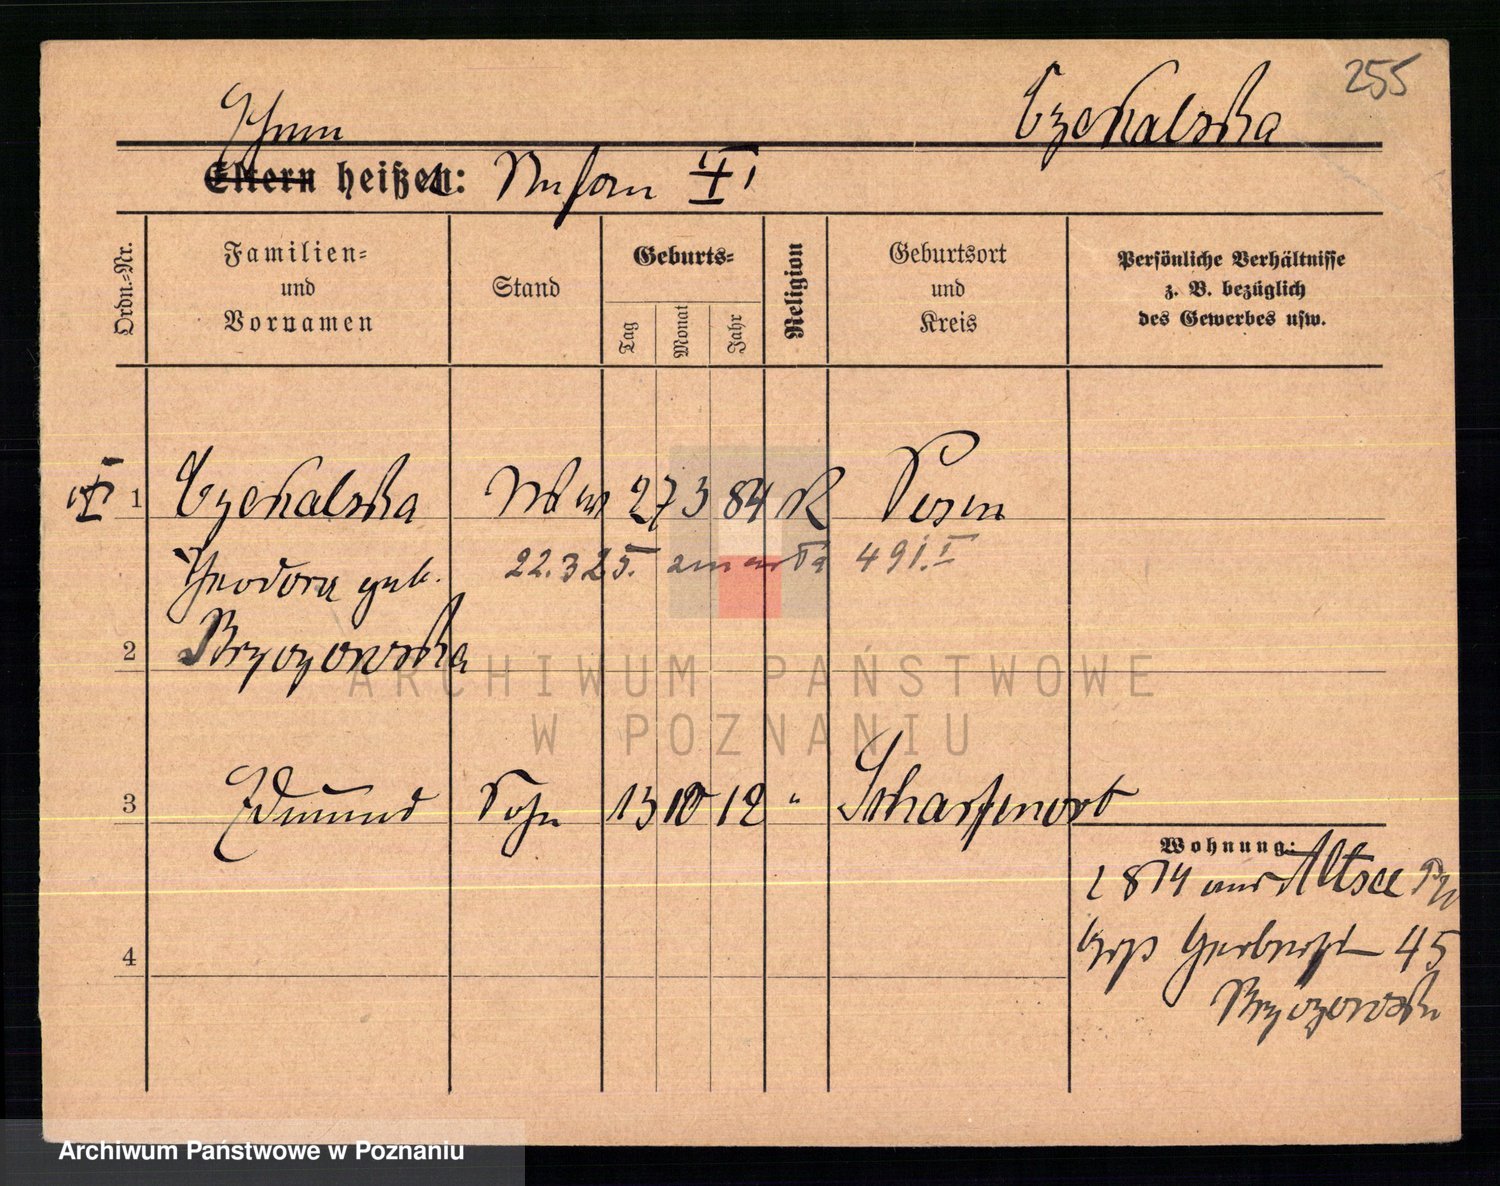 255
Czekalska
Eltern heißen:
Ordn.-Nr.
Familien-
und
Vornamen
Stand
Geburts-
Tag
Monat
Jahr
Religion
Geburtsort
und
Kreis
Persönliche Verhältnisse
z. B. bezüglich
des Gewerbes usw.
1 Czekalska Ww 27 3 84 K Posen
Theodora geb. 22.3 25.
2 Brzozowska
3 Edmund Sohn 13 10 12 " Scharfenort
Wohnung:
1814 aus Altsee
45
4
Brzozowski
ARCHIWUM PAŃSTWOWE
W POZNANIU
Archiwum Państwowe w Poznaniu